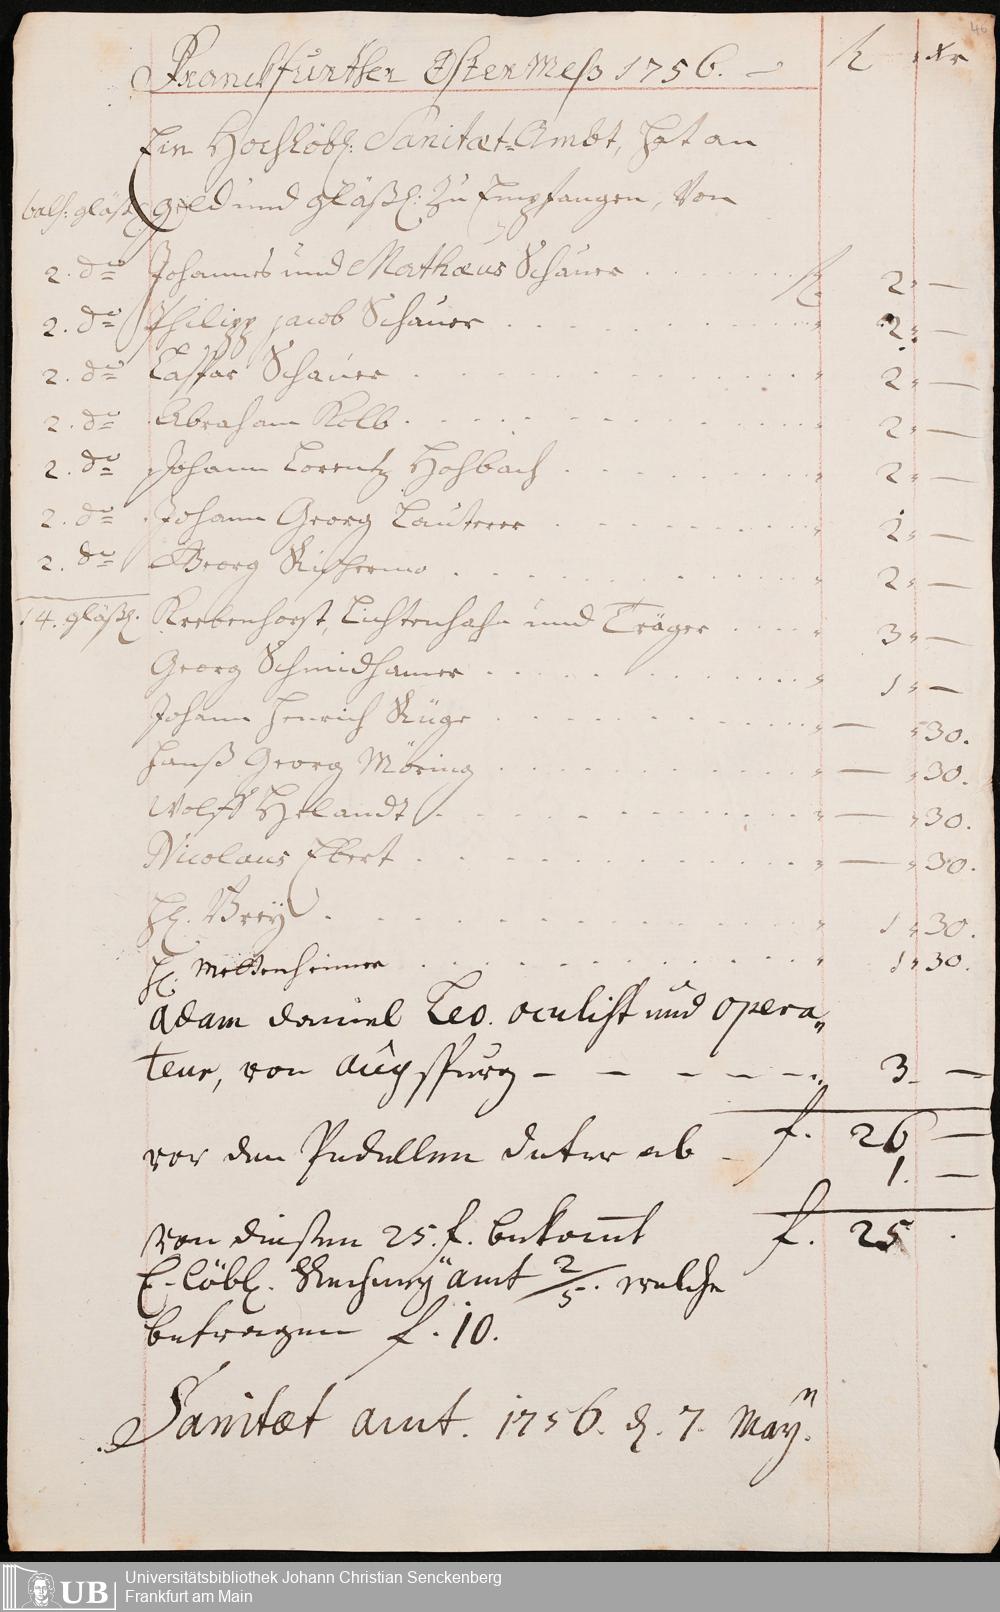 46
Franckfurther Oster Meß 1756. — fl xr
Ein Hochlöbl: Sanitæt-Ambt, hat an
balß: gläßl: geld und gläßl: zu Empfangen, Von
2. do Johannes und Mathæus Schauer . . . . . . fl. 2. —
2. do Philipp jacob Schauer . . . . . . . . 2. —
2. do Caspar Schauer . . . . . . . . . . 2. —
2. do Abraham Kolb . . . . . . . . . . 2. —
2. do Johann Lorentz Hohbach . . . . . . 2. —
2. do Johann Georg Lauterer . . . . . . . 2. —
2. do Georg . . . . . . . . . 2. —
14. gläßl. Krebenhorst, Lichtenhahn und Träger . . . . 3. —
Georg Schmidhamer . . . . . . . . . 1. —
Johann Henrich Rüge . . . . . . . . — 30.
Hanß Georg Möring . . . . . . . . — 30.
Wolff Helandt . . . . . . . . . . — 30.
Nicolaus Ebert . . . . . . . . . . — 30.
H. Brey . . . . . . . . . . . . 1 30.
H. Mettenheimer . . . . . . . . . . 1 30.
Adam Daniel Leo. oculist und opera„
teur, von Augspurg — — — — — 3. —
f. 26 —
vor den Pedellen Deter ab — 1. —
f. 25 .
von dießen 25. f. bekomt
E. löbl. Rechney amt 2/5. welche
betragen f. 10.
Sanitæt amt. 1756. d. 7. May.
UB
Universitätsbibliothek Johann Christian Senckenberg
Frankfurt am Main